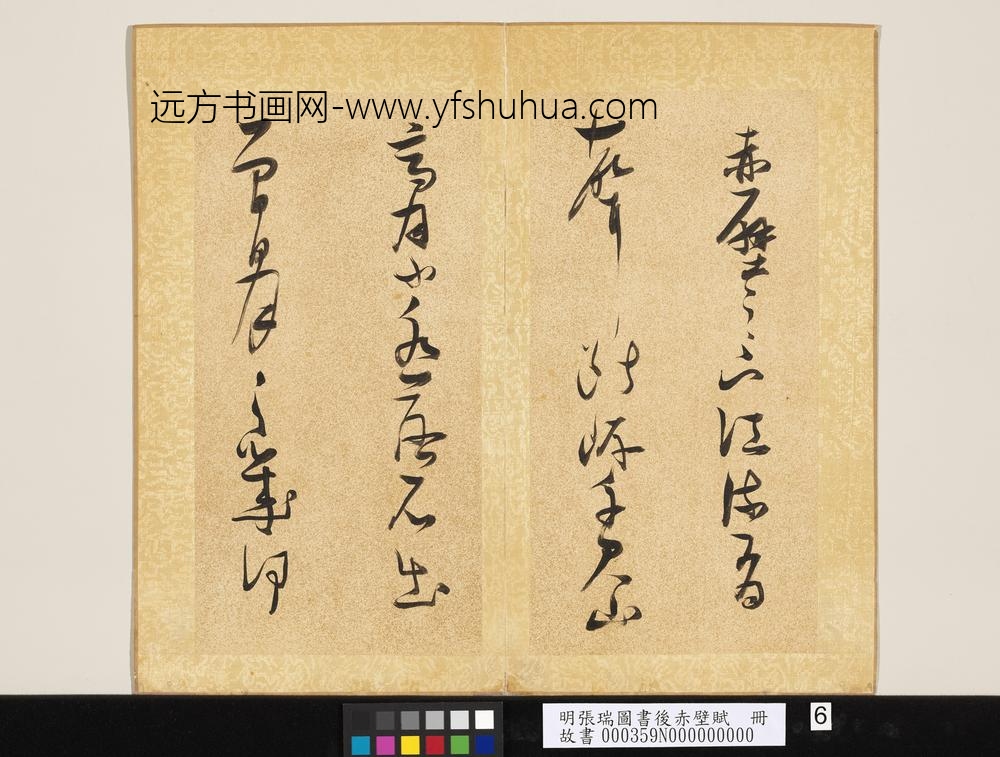 远方书画网-www.yfshuhua.com
赤壁之下江流有
聲斷岸千尺山
高月小水落石出
曾日月之幾何
明張瑞圖書後赤壁賦 冊
故書 000359N000000000
6